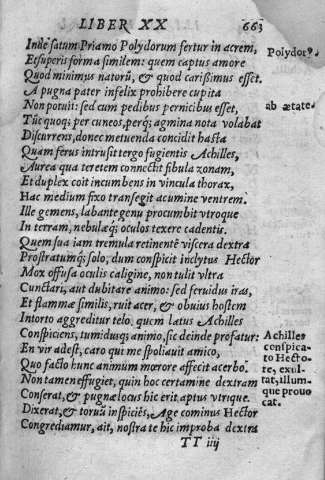 LIBER XX 663
Inde satum Priamo Polydorum fertur in acrem,
Polydorꝰ.
Et superis forma similem: quem captus amore
Quod minimus natorũ, & quod carißimus esset,
A pugna pater infelix prohibere cupita
Non potuit: sed cum pedibus pernicibus esset,
ab ætate
Tũc quoq; per cuneos, perq; agmina nota volabat
Discurrens, donec metuenda concidit hasta
Quam ferus intrusit tergo fugientis Achilles,
Aurea qua teretem connectit fibula zonam,
Et duplex coit incumbens in vincula thorax,
Hac medium fixo transegit acumine ventrem.
Ille gemens, labante genu procumbit vtroque
In terram, nebulæq; oculos texere cadentis.
Quem sua iam tremula retinentẽ viscera dextra
Prostratumq; solo, dum conspicit inclytus Hector
Mox offusa oculis caligine, non tulit vltra
Cunctari, aut dubitare animo: sed feruidus iras,
Et flammæ similis, ruit acer, & obuius hostem
Intorto aggreditur telo, quem lætus Achilles
Conspiciens, tumidusq; animo, sic deinde profatur:
Achilles
conspica-
to Hecto-
re, exul-
tat, illum-
que prouo
cat.
En vir adest, caro qui me spoliauit amico,
Quo facto hunc animum mœrore affecit acerbo.
Non tamen effugiet, quin hoc certamine dextram
Conserat, & pugnæ locus hic erit aptus vtrique.
Dixerat, & toruũ inspiciẽs, Age cominus Hector
Congrediamur, ait, nostra te hic improba dextra
TT iiij